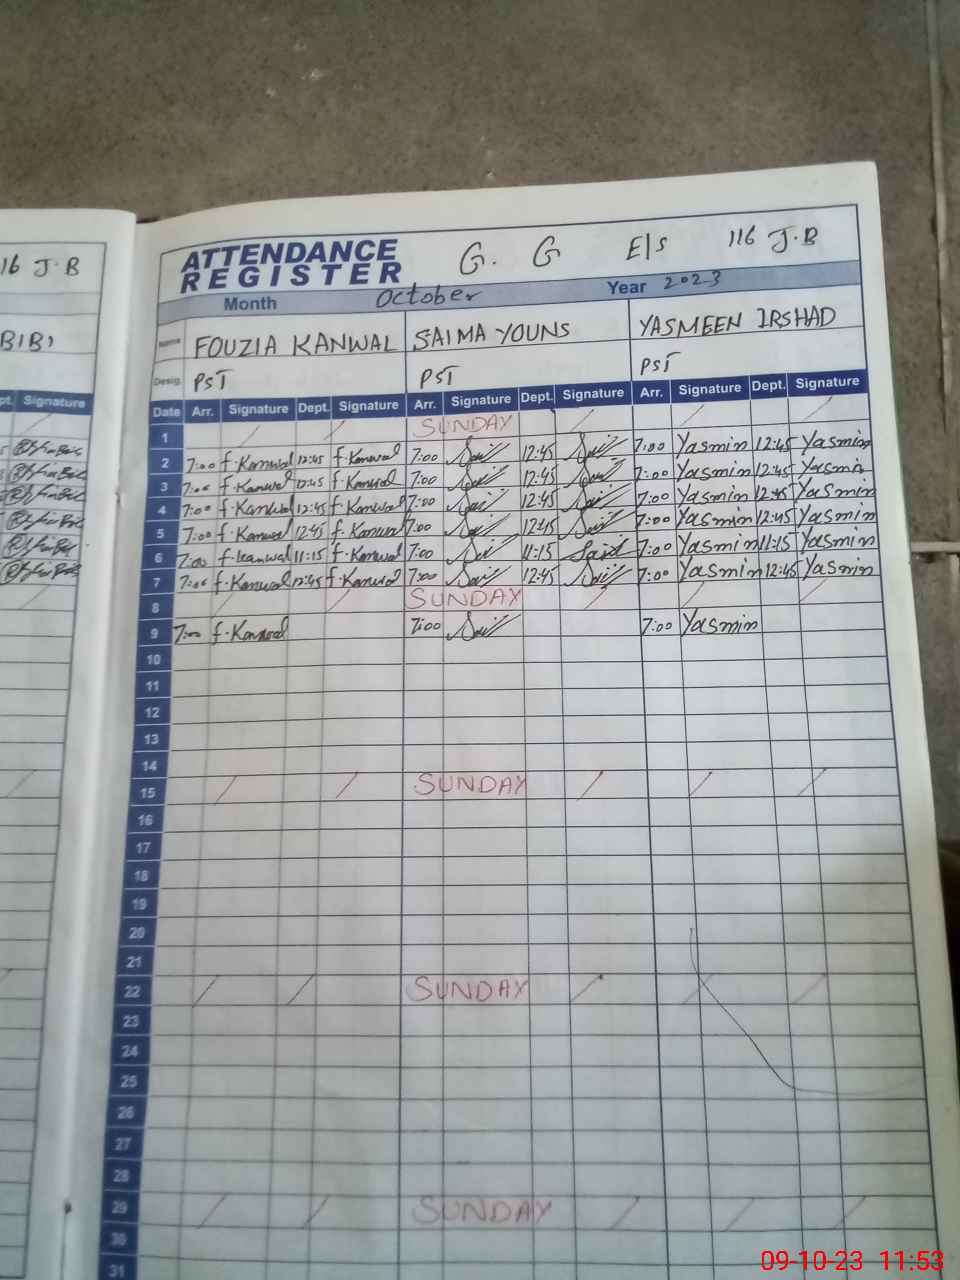 16 J.B
BIBI
pt. Signature
ATTENDANCE REGISTER G. G E/S 116 J.B
Month October Year 2023
Name FOUZIA KANWAL SAIMA YOUNS YASMEEN IRSHAD
Desig. PST PST PST
Date Arr. Signature Dept. Signature Arr. Signature Dept. Signature Arr. Signature Dept. Signature
1 SUNDAY
2 7:00 f.Kanwal 12:45 f.Kanwal 7:00 12:45 7:00 Yasmin 12:45 Yasmin
3 7:00 f.Kanwal 12:45 f.Kanwal 7:00 12:45 7:00 Yasmin 12:45 Yasmin
4 7:00 f.Kanwal 12:45 f.Kanwal 7:00 12:45 7:00 Yasmin 12:45 Yasmin
5 7:00 f.Kanwal 12:45 f.Kanwal 7:00 12:45 7:00 Yasmin 12:45 Yasmin
6 7:00 f.Kanwal 11:15 f.Kanwal 7:00 11:15 7:00 Yasmin 11:15 Yasmin
7 7:00 f.Kanwal 12:45 f.Kanwal 7:00 12:45 7:00 Yasmin 12:45 Yasmin
8 SUNDAY
9 7:00 f.Kanwal 7:00 7:00 Yasmin
10
11
12
13
14
15 SUNDAY
16
17
18
19
20
21
22 SUNDAY
23
24
25
26
27
28
29 SUNDAY
30
31
09-10-23 11:53